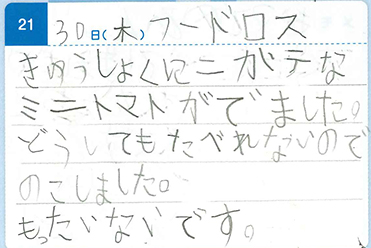 21 30日(木)フードロス
きゅうしょくにニガテな
ミニトマトがでました。
どうしてもたべれないので
のこしました。
もったいないです。